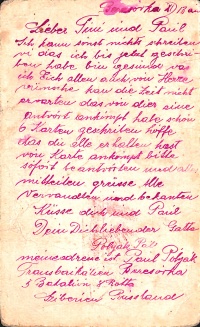 Lieber Tini und Paul
Ich kann sonst nichts schreiben
wi das ich bis jetzt geschri-
ben habe bin gesund was
ich Eich allen auch von Herze
winsche kan die Zeit nicht
erwarten das von dier eine
antwort ankimpt habe schon
6 Karten geschriben hoffe
das du alle erhalten hast
von Karte ankompt bitte
sofort beantworten und
mitteilen grüsse Alle
Verwandten und bekanten
Küsse dich und Paul
Dein Dichliebender Gatte
Pobjak Paul
meine adrese ist Paul Pobjak
Transbaikalien Beresovka
5 Batalion 8 Rotta
Siberien Russland